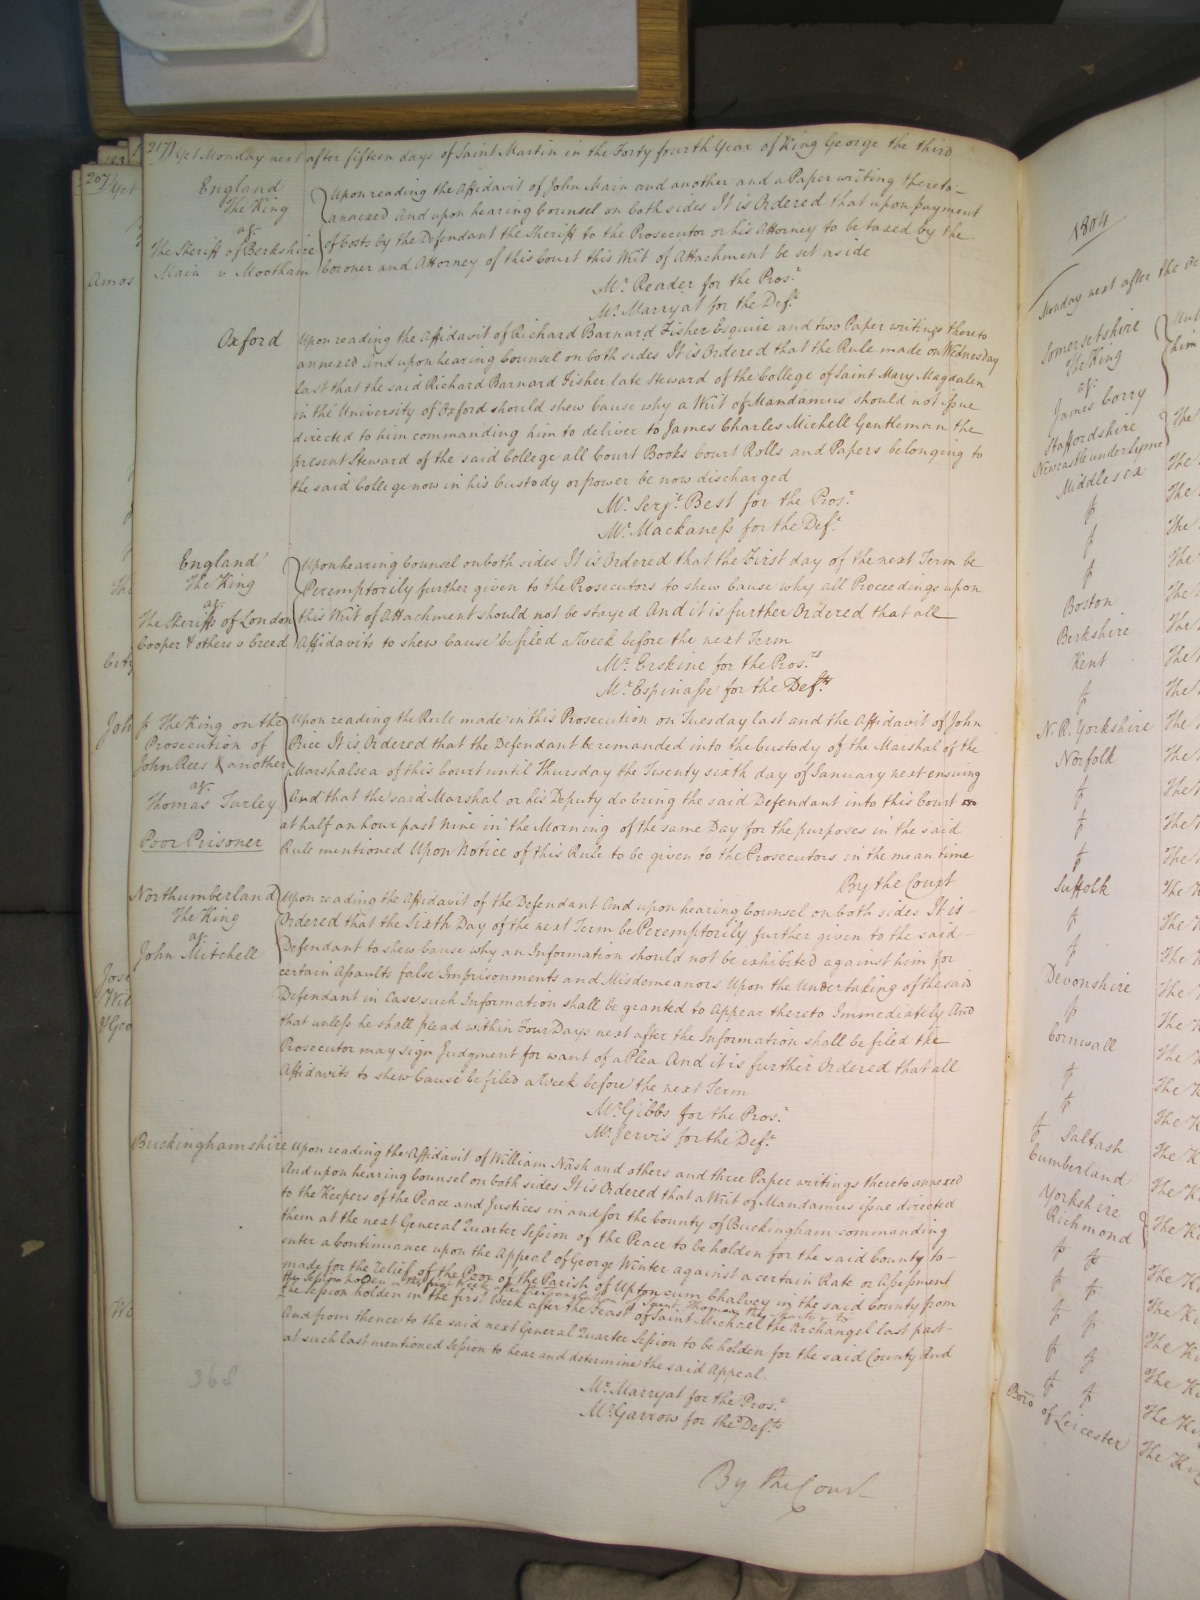 217) Yet Monday next after fifteen days of Saint Martin in the Forty fourth Year of King George the third
England
The King
agt.
The Sheriff of Berkshire
Main v Mootham
Upon reading the Affidavit of John Main and another and a Paper writing thereto
annexed And upon hearing Counsel on both sides It is Ordered that upon payment
of Costs by the Defendant the Sheriff to the Prosecutor or his Attorney to be taxed by the
Coroner and Attorney of this Court this Writ of Attachment be set aside
Mr. Reader for the Prosr.
Mr. Marryat for the Deft.
Oxford
Upon reading the Affidavit of Richard Barnard Fisher Esquire and two Paper writings thereto
annexed And upon hearing Counsel on both sides It is Ordered that the Rule made on Wednesday
last that the said Richard Barnard Fisher late Steward of the College of Saint Mary Magdalen
in the University of Oxford should shew Cause why a Writ of Mandamus should not issue
directed to him commanding him to deliver to James Charles Michell Gentleman the
present Steward of the said College all Court Books Court Rolls and Papers belonging to
the said College now in his Custody or power be now discharged
Mr. Serjt. Best for the Prosr.
Mr. Mackaness for the Deft.
England
The King
agt.
The Sheriffs of London
Cooper & others v Creed
Upon hearing Counsel on both sides It is Ordered that the First day of the next Term be
Peremptorily further given to the Prosecutors to shew Cause why all Proceedings upon
this Writ of Attachment should not be stayed And it is further Ordered that all
Affidavits to shew Cause be filed a Week before the next Term
Mr. Erskine for the Prosrs
Mr. Espinasse for the Defts
The King on the
Prosecution of
John Rees & another
agt.
Thomas Turley
Poor Prisoner
Upon reading the Rule made in this Prosecution on Tuesday last and the Affidavit of John
Price It is Ordered that the Defendant be remanded into the Custody of the Marshal of the
Marshalsea of this Court until Thursday the Twenty sixth day of January next ensuing
And that the said Marshal or his Deputy do bring the said Defendant into this Court
at half an hour past Nine in the Morning of the same Day for the purposes in the said
Rule mentioned Upon Notice of this Rule to be given to the Prosecutors in the mean time
By the Court
Northumberland
The King
agt.
John Mitchell
Upon reading the Affidavit of the Defendant And upon hearing Counsel on both sides It is
Ordered that the Sixth Day of the next Term be Peremptorily further given to the said
Defendant to shew Cause why an Information should not be exhibited against him for
certain Assaults false Imprisonments and Misdemeanors Upon the Undertaking of the said
Defendant in Case such Information shall be granted to Appear thereto Immediately And
that unless he shall plead within Four Days next after the Information shall be filed the
Prosecutor may sign Judgment for want of a Plea And it is further Ordered that all
Affidavits to shew Cause be filed a Week before the next Term
Mr. Gibbs for the Prosr.
Mr. Jervis for the Deft.
Buckinghamshire
Upon reading the Affidavit of William Nash and others and three Paper writings thereto annexed
And upon hearing Counsel on both sides It is Ordered that a Writ of Mandamus issue directed
to the Keepers of the Peace and Justices in and for the County of Buckingham commanding
them at the next General Quarter Session of the Peace to be holden for the said County to
enter a Continuance upon the Appeal of George Winter against a certain Rate or Assessment
made for the relief of the Poor of the Parish of Upton cum Chalvey in the said County from
the Session holden in the first Week after the Saint Thomas the Martyr to
the Session holden in the first Week after the Feast of Saint Michael the Archangel last past
And from thence to the said next General Quarter Session to be holden for the said County And
at such last mentioned Session to hear and determine the said Appeal.
Mr. Marryat for the Prosr.
Mr. Garrow for the Defts
By the Court
1804
Monday next after the
Somersetshire
The King
agt.
James Corry
Staffordshire
Newcastle under lyme
Middlesex
Boston
Berkshire
Kent
N. R. Yorkshire
Norfolk
Suffolk
Devonshire
Cornwall
Saltash
Cumberland
Yorkshire
Richmond
Boro
of Leicester